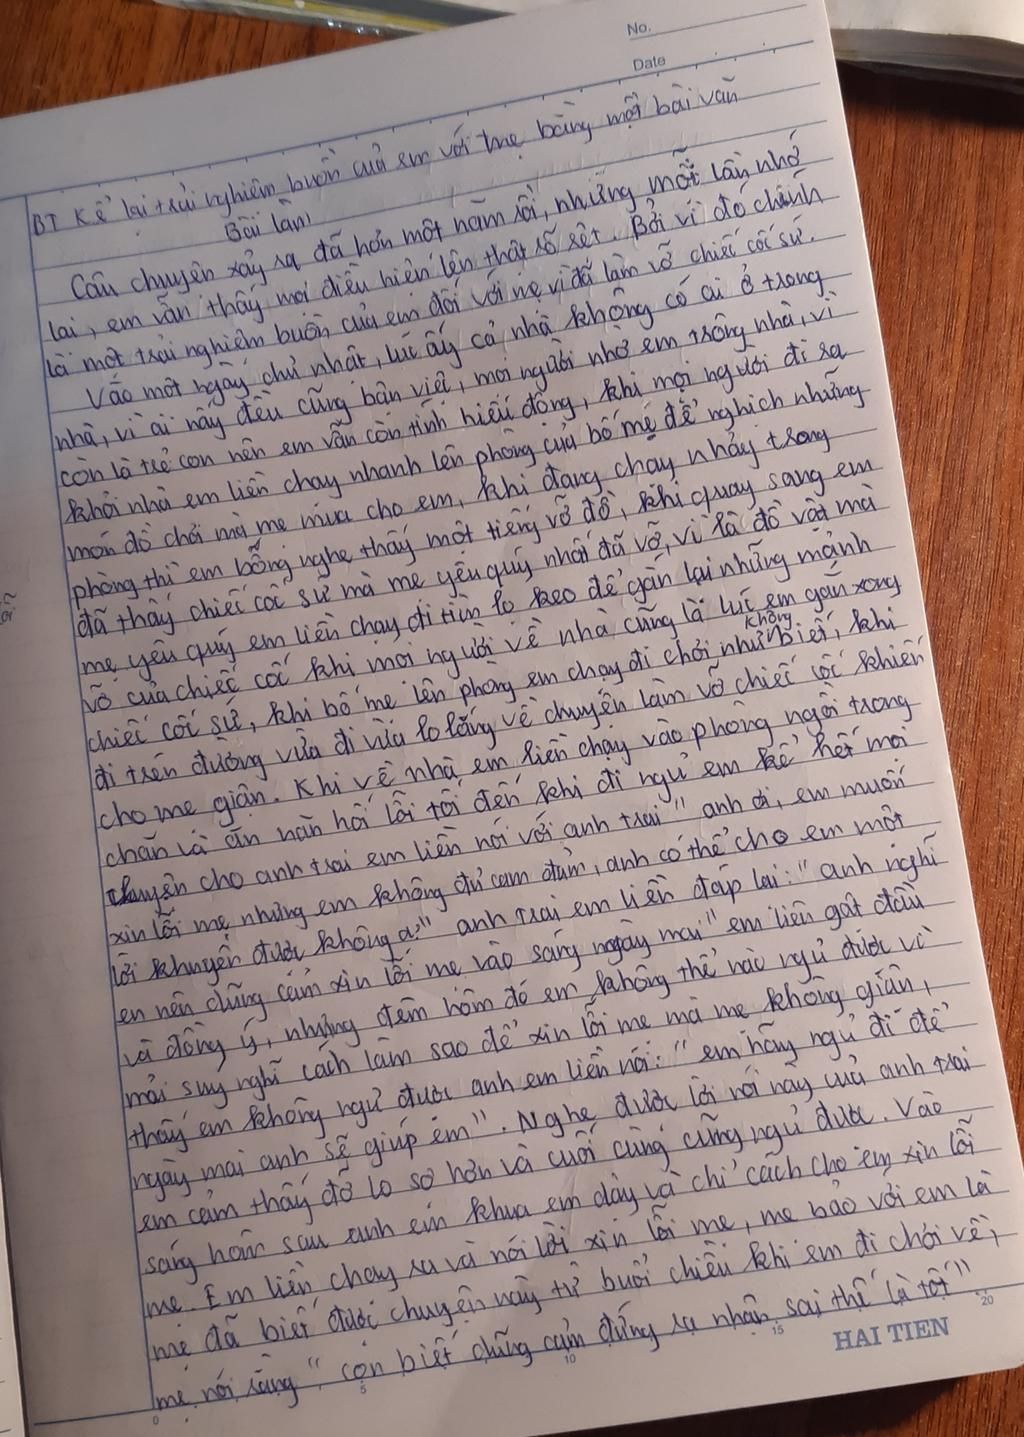 No.
Date
BT Kể lại trải nghiệm buồn của em với mẹ bằng một bài văn
Bài làm
Câu chuyện xảy ra đã hơn một năm rồi, nhưng mỗi lần nhớ
lại, em vẫn thấy mọi điều hiện lên thật rõ rệt. Bởi vì đó chính
là một trải nghiệm buồn của em đối với mẹ vì đã làm vỡ chiếc cốc sứ.
Vào một ngày chủ nhật, lúc ấy cả nhà không có ai ở trong
nhà, vì ai nấy đều cũng bận việt, mọi người nhờ em trông nhà, vì
còn là trẻ con nên em vẫn còn tính hiếu động, khi mọi người đi ra
khỏi nhà em liền chạy nhanh lên phòng của bố mẹ để nghịch những
món đồ chơi mà mẹ mua cho em, khi đang chạy nhảy trong
phòng thì em bỗng nghe thấy một tiếng vỡ đồ, khi quay sang em
đã thấy chiếc cốc sứ mà mẹ yêu quý nhất đã vỡ, vì là đồ vật mà
mẹ yêu quý em liền chạy đi tìm lọ keo để gắn lại những mảnh
vỡ của chiếc cốc khi mọi người về nhà cũng là lúc em gắn xong
chiếc cốc sứ, khi bố mẹ lên phòng em chạy đi chơi như không biết, khi
đi trên đường vừa đi vừa lo lắng về chuyện làm vỡ chiếc cốc khiến
cho mẹ giận. Khi về nhà em liền chạy vào phòng ngồi trong
chăn và ăn năn hối lỗi tối đến khi đi ngủ em kể hết mọi
chuyện cho anh trai em liền nói với anh trai" anh ơi, em muốn
xin lỗi mẹ nhưng em không đủ cam đảm, anh có thể cho em một
lời khuyên được không ạ?" anh trai em liền đáp lại: "anh nghĩ
en nên dũng cảm xin lỗi mẹ vào sáng ngày mai" em liền gật đầu
và đồng ý, nhưng đêm hôm đó em không thể nào ngủ được vì
mải suy nghĩ cách làm sao để xin lỗi mẹ mà mẹ không giận,
thấy em không ngủ được anh em liền nói: "em hãy ngủ đi để
ngày mai anh sẽ giúp em". Nghe được lời nói này của anh trai
em cảm thấy đỡ lo sợ hơn và cuối cùng cũng ngủ được. Vào
sáng hôm sau anh em khua em dậy và chỉ cách cho em xin lỗi
mẹ. Em liền chạy ra và nói lời xin lỗi mẹ, mẹ bảo với em là
mẹ đã biết được chuyện này từ buổi chiều khi em đi chơi về,
mẹ nói rằng "con biết dũng cảm đứng ra nhận sai thế là tốt"
0 5 10 15 20
HAI TIEN